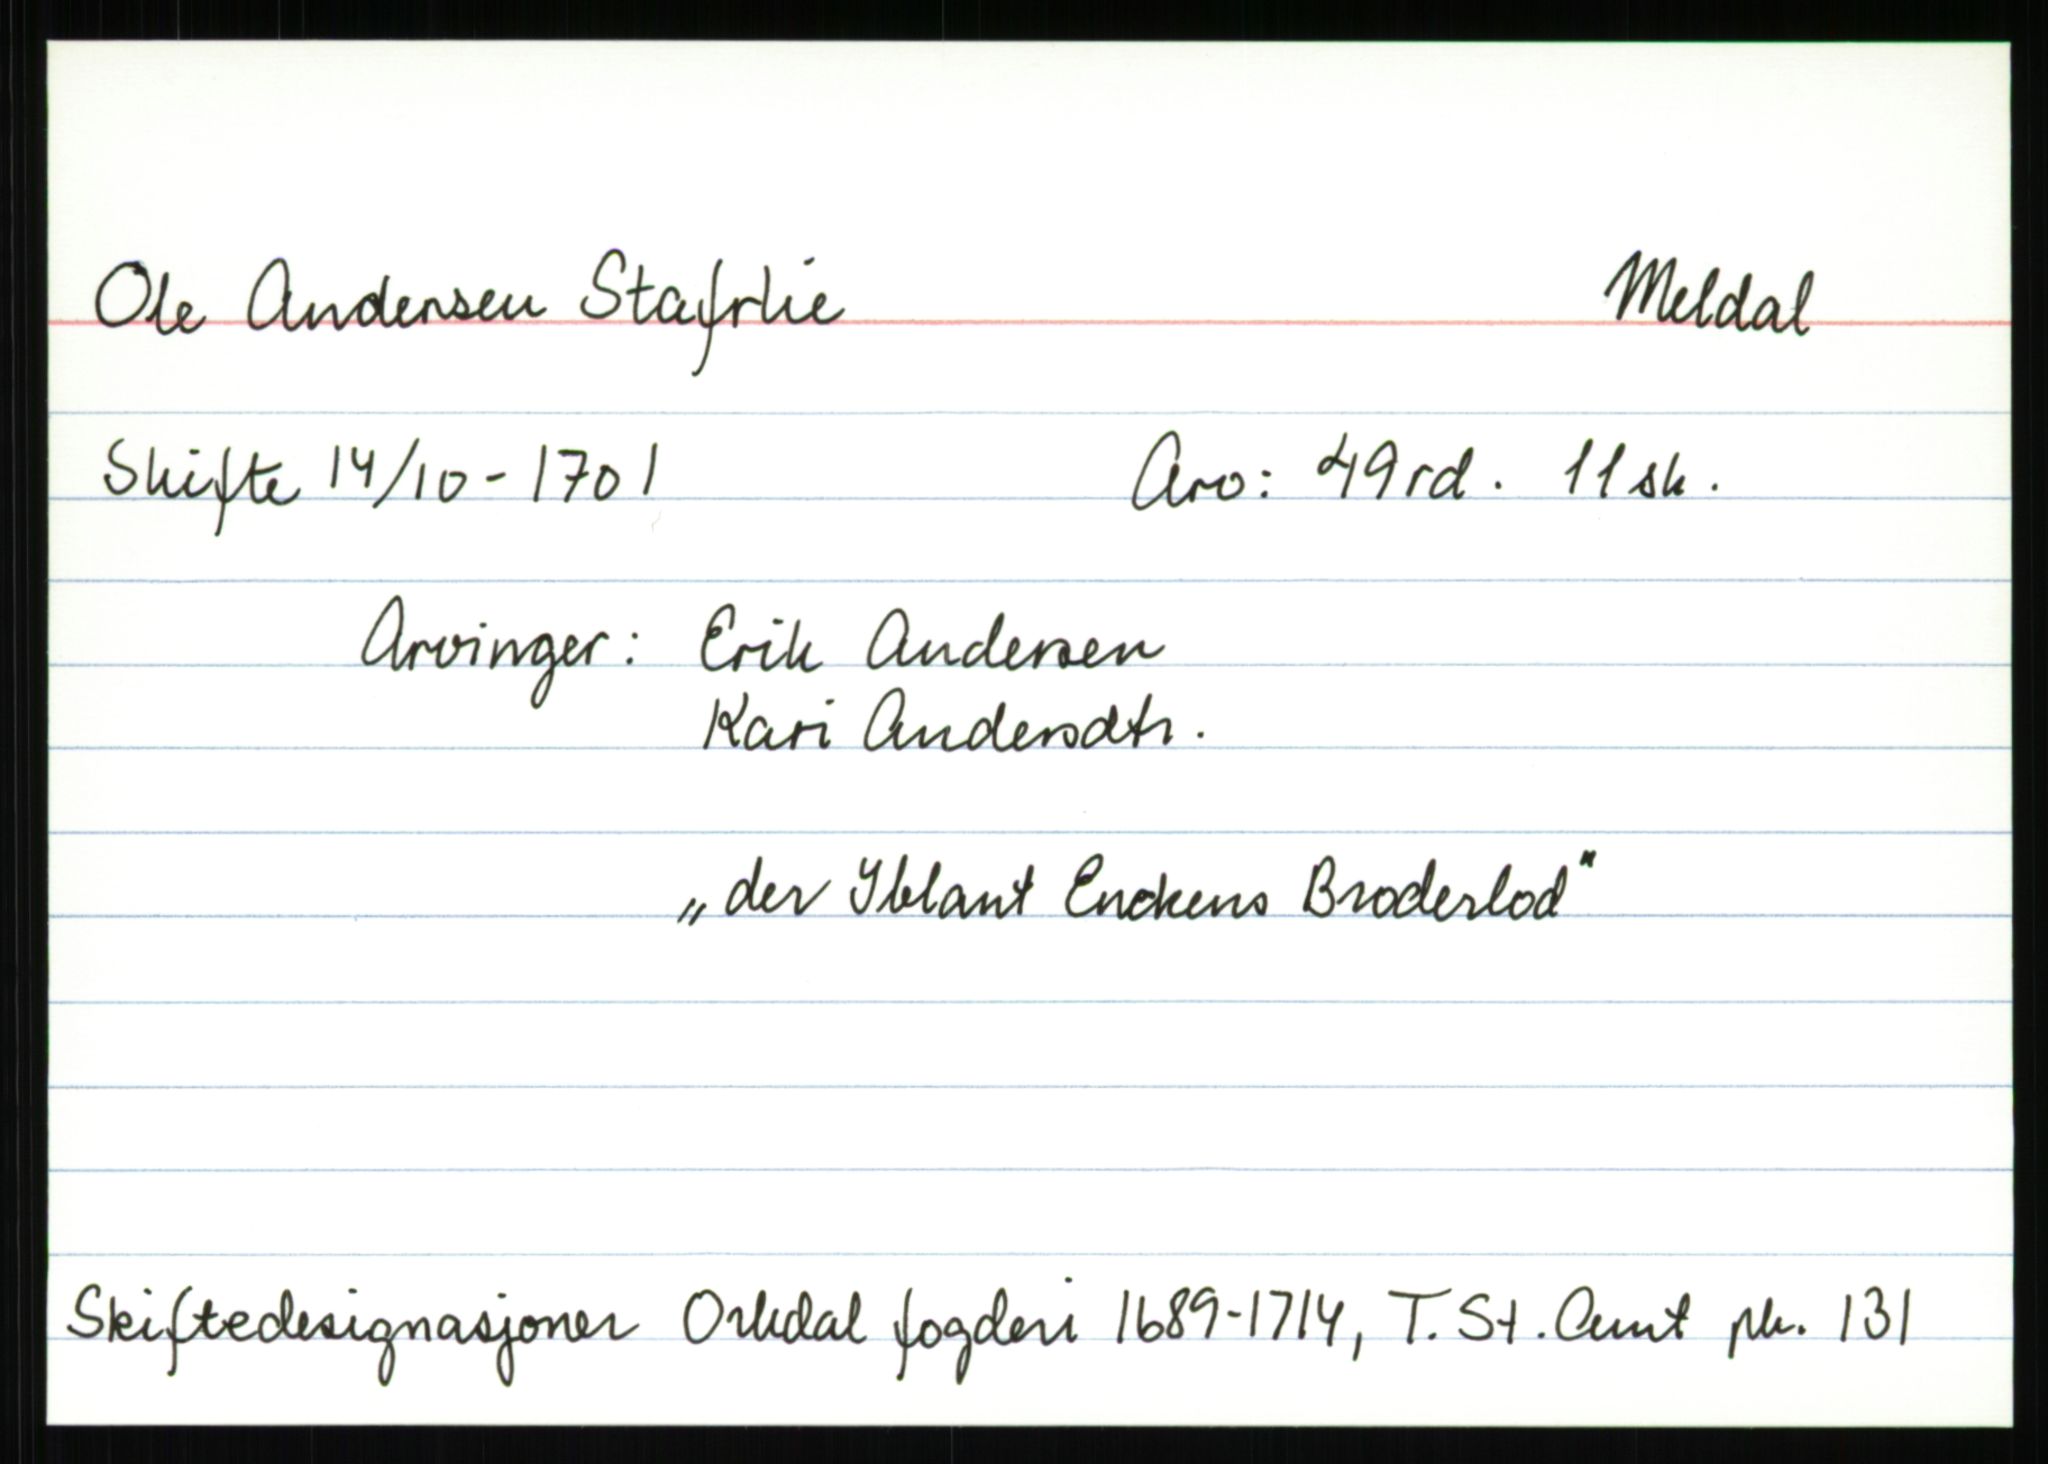 Ole Andersen Stafrlie Meldal
Skifte 14/10-1701 Arv: 49 rd. 11 sk.
Arvinger: Erik Andersen
Kari Andersdtr.
„der Iblant Enckens Broderlod"
Skiftedesignasjoner Orkdal fogderi 1689-1714, T. St. Amt pk. 131